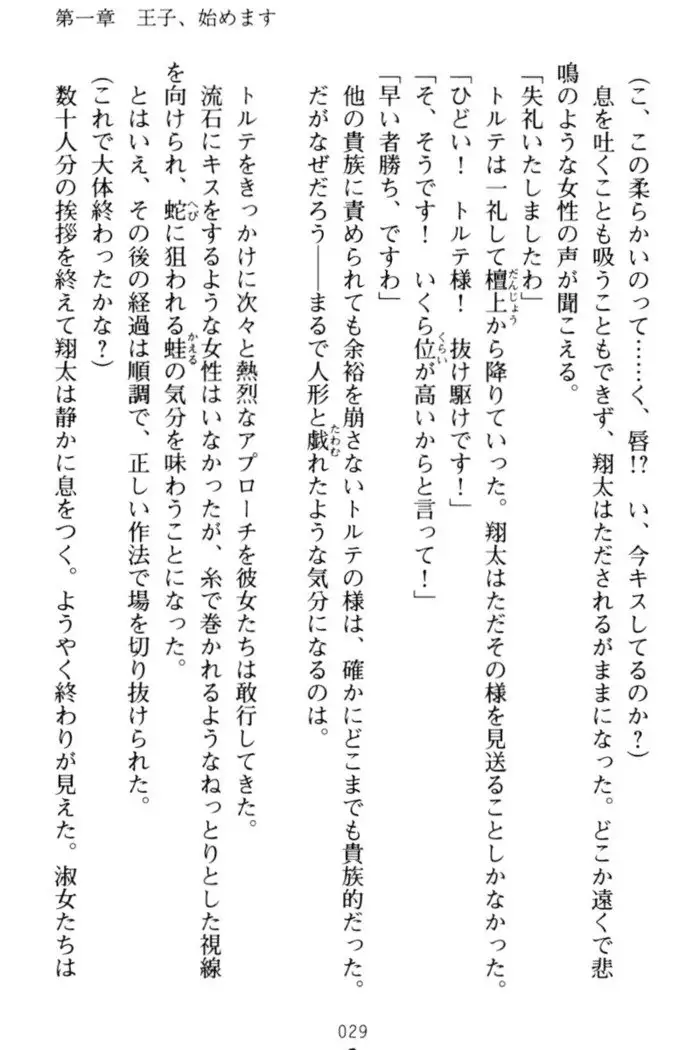 第一章　王子、始めます
(こ、この柔らかいのって……く、唇!?　い、今キスしてるのか？)
息を吐くことも吸うこともできず、翔太はただされるがままになった。どこか遠くで悲
鳴のような女性の声が聞こえる。
「失礼いたしましたわ」
トルテは一礼して檀上から降りていった。翔太はただその様を見送ることしかなかった。
「ひどい！　トルテ様！　抜け駆けです！」
「そ、そうです！　いくら位が高いからと言って！」
「早い者勝ち、ですわ」
他の貴族に責められても余裕を崩さないトルテの様は、確かにどこまでも貴族的だった。
だがなぜだろう――まるで人形と戯れたような気分になるのは。
トルテをきっかけに次々と熱烈なアプローチを彼女たちは敢行してきた。
流石にキスをするような女性はいなかったが、糸で巻かれるようなねっとりとした視線
を向けられ、蛇に狙われる蛙の気分を味わうことになった。
とはいえ、その後の経過は順調で、正しい作法で場を切り抜けられた。
(これで大体終わったかな？)
数十人分の挨拶を終えて翔太は静かに息をつく。ようやく終わりが見えた。淑女たちは
029